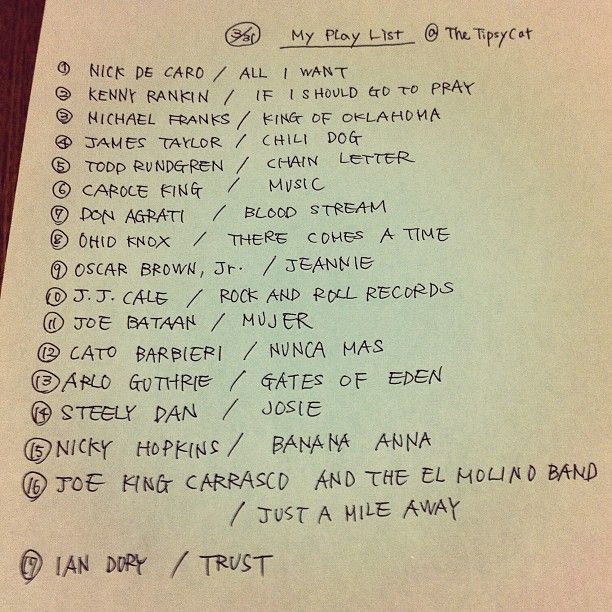 3/31 My Play List @ The Tipsy Cat
① NICK DE CARO / ALL I WANT
② KENNY RANKIN / IF I SHOULD GO TO PRAY
③ MICHAEL FRANKS / KING OF OKLAHOMA
④ JAMES TAYLOR / CHILI DOG
⑤ TODD RUNDGREN / CHAIN LETTER
⑥ CAROLE KING / MUSIC
⑦ DON AGRATI / BLOOD STREAM
⑧ OHID KNOX / THERE COMES A TIME
⑨ OSCAR BROWN, Jr. / JEANNIE
⑩ J.J. CALE / ROCK AND ROLL RECORDS
⑪ JOE BATAAN / MUJER
⑫ CATO BARBIERI / NUNCA MAS
⑬ ARLO GUTHRIE / GATES OF EDEN
⑭ STEELY DAN / JOSIE
⑮ NICKY HOPKINS / BANANA ANNA
⑯ JOE KING CARRASCO AND THE EL MOLINO BAND
/ JUST A MILE AWAY
⑰ IAN DORY / TRUST